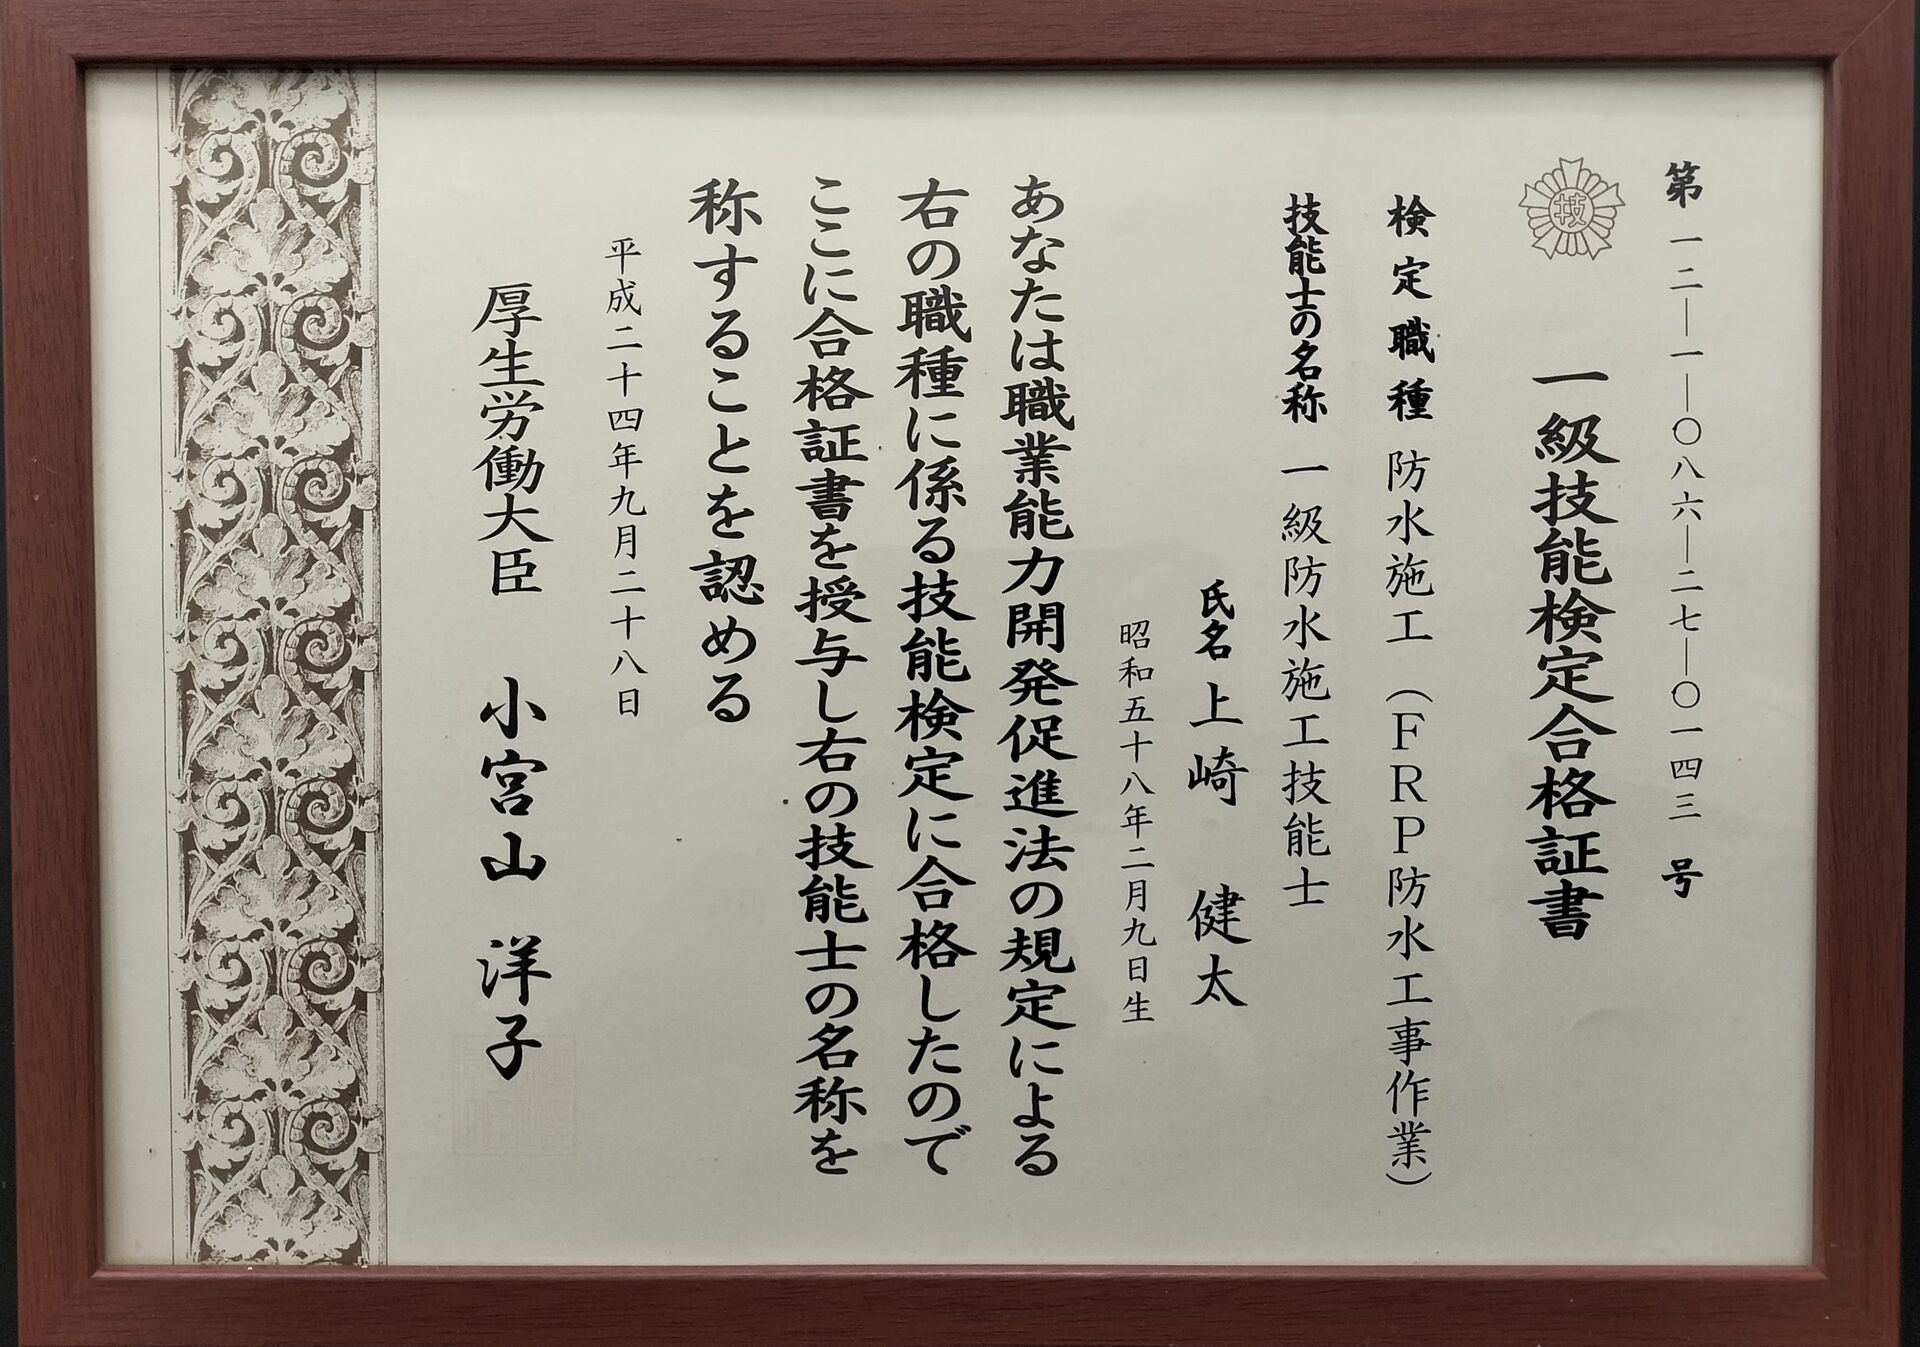 第一二―一―〇八六―二七―〇一四三号
技
一級技能検定合格証書
検定職種 防水施工（ＦＲＰ防水工事作業）
技能士の名称 一級防水施工技能士
氏名 上崎 健太
昭和五十八年二月九日生
あなたは職業能力開発促進法の規定による
右の職種に係る技能検定に合格したので
ここに合格証書を授与し右の技能士の名称を
称することを認める
平成二十四年九月二十八日
厚生労働大臣 小宮山 洋子